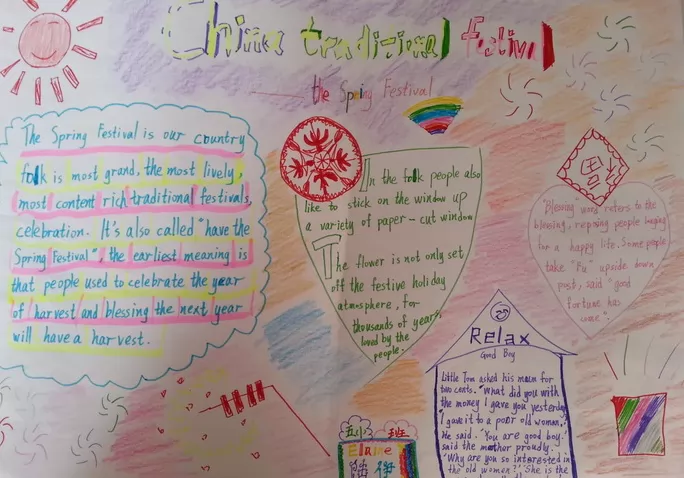 China traditional festival
the Spring Festival
The Spring Festival is our country
folk is most grand, the most lively,
most content rich traditional festivals,
celebration. It's also called "have the
Spring Festival", the earliest meaning is
that people used to celebrate the year
of harvest and blessing the next year
will have a harvest.
In the folk people also
like to stick on the window up
a variety of paper-cut window
The flower is not only set
off the festive holiday
atmosphere, for
thousands of years,
loved by the
people.
"Blessing" word refers to the
blessing, people
for a happy life. Some people
take "Fu" upside down
post, said "good
fortune has
Relax
Good Boy
Little Tom asked his mom for
two cents. "What did you with
the money I gave you yesterday
"I gave it to a poor old woman,"
He said. "You are good boy."
said the mother proudly.
"Why are you so interested in
the old women?" "She is the
班
Elaine